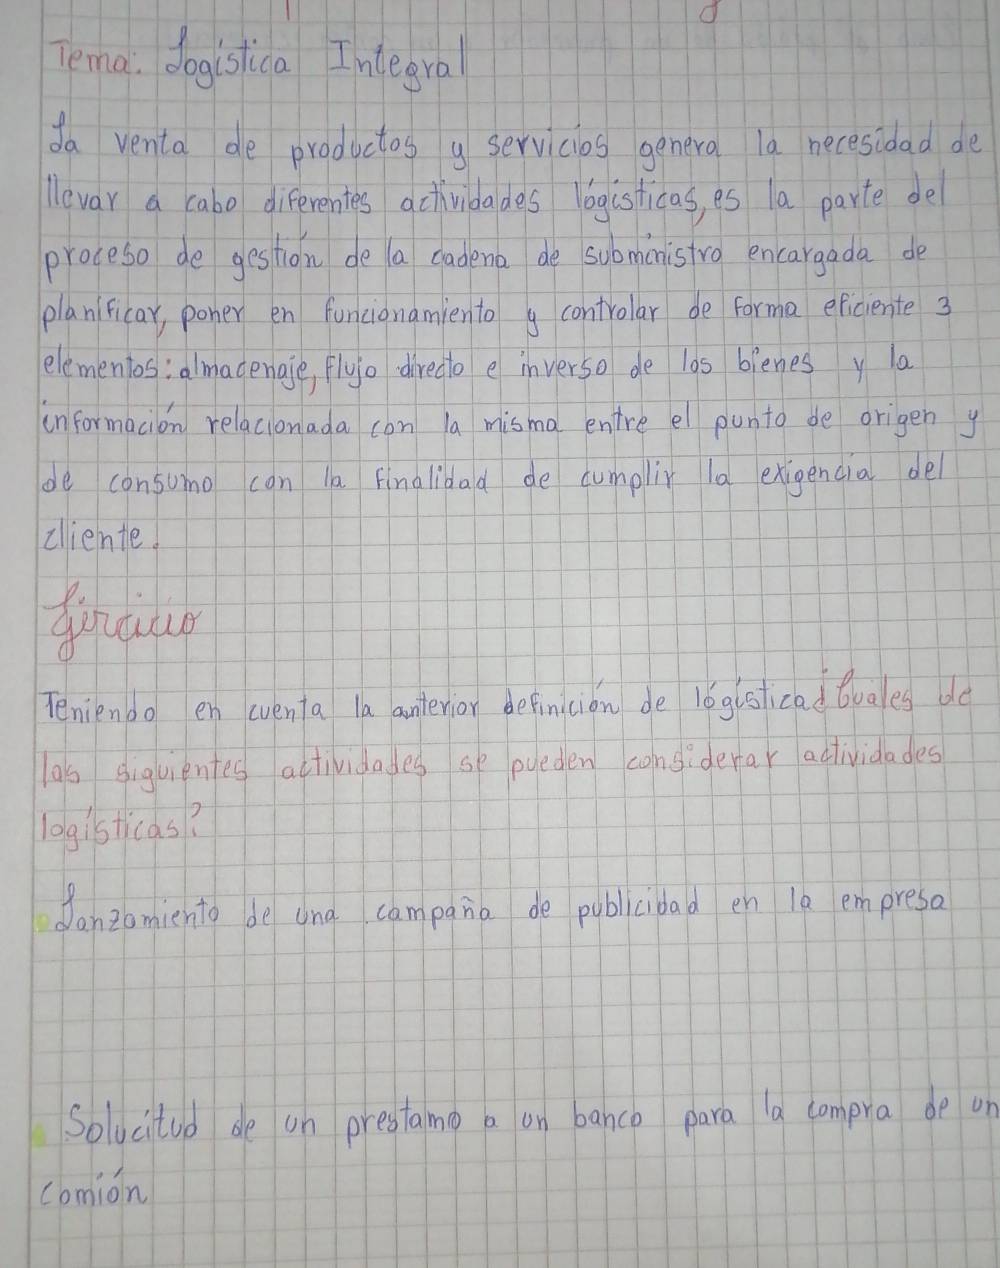 Tema: Logistica Integral
La venta de productos y servicios genera la necesidad de
llevar a cabo diferentes actividades lógisticas, es la parte del
proceso de gestión de la cadena de subministro encargada de
planificar, poner en funcionamiento y controlar de forma eficiente 3
elementos: almacenaje, flujo directo e inverso de los bienes y la
información relacionada con la misma entre el punto de origen y
de consumo con la finalidad de cumplir la exigencia del
cliente.
Ejercicio
Teniendo en cuenta la anterior definición de lógistica ¿Cuales de
las siguientes actividades se pueden considerar actividades
logísticas?
Lanzamiento de una campaña de publicidad en la empresa
Solucitud de un prestamo a un banco para la compra de un
comión